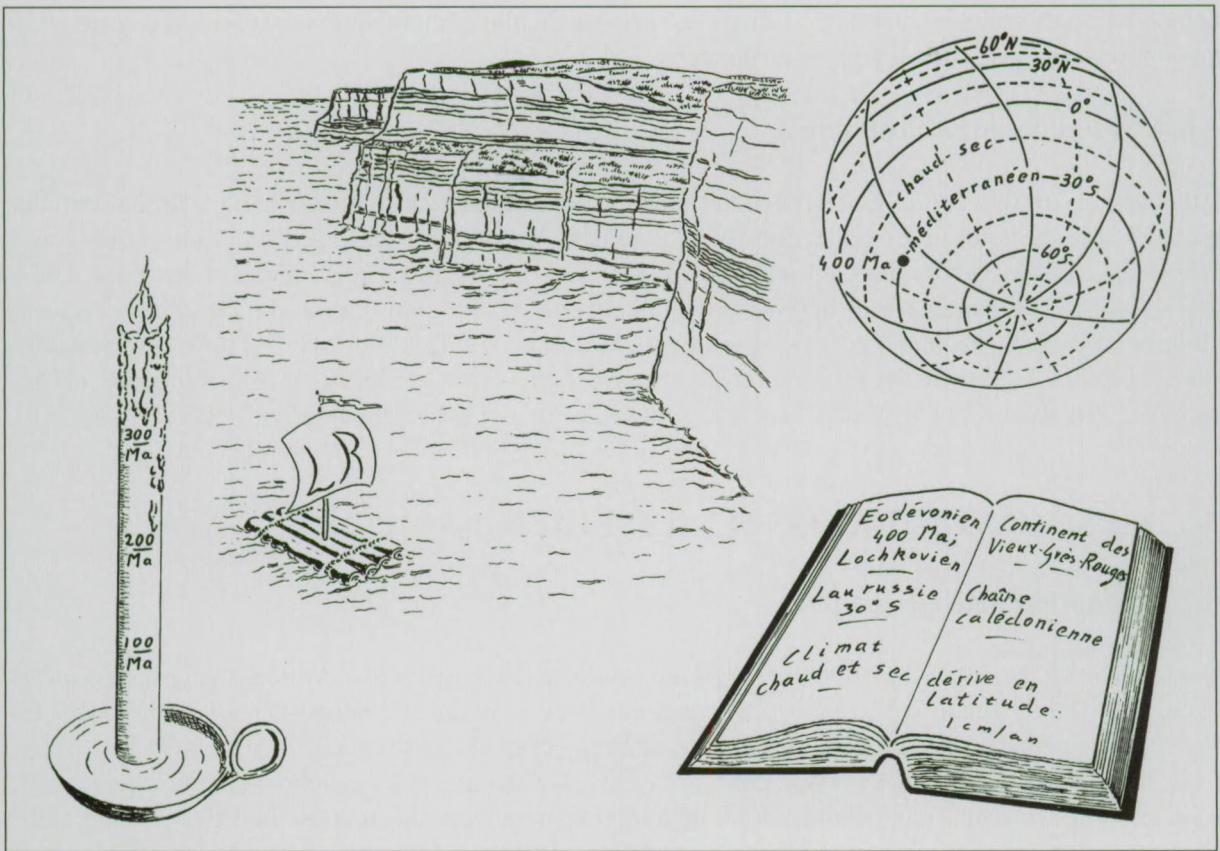 60°N
30°N
0°
chaud sec
méditerranéen 30°S
60°S
400 Ma
300
Ma
200
Ma
100
Ma
LR
Eodévonien
400 Ma;
Lochkovien
Laurussie
30° S
Climat
chaud et sec
Continent des
Vieux-Grès-Rouges
Chaîne
calédonienne
dérive en
latitude:
1 cm/an